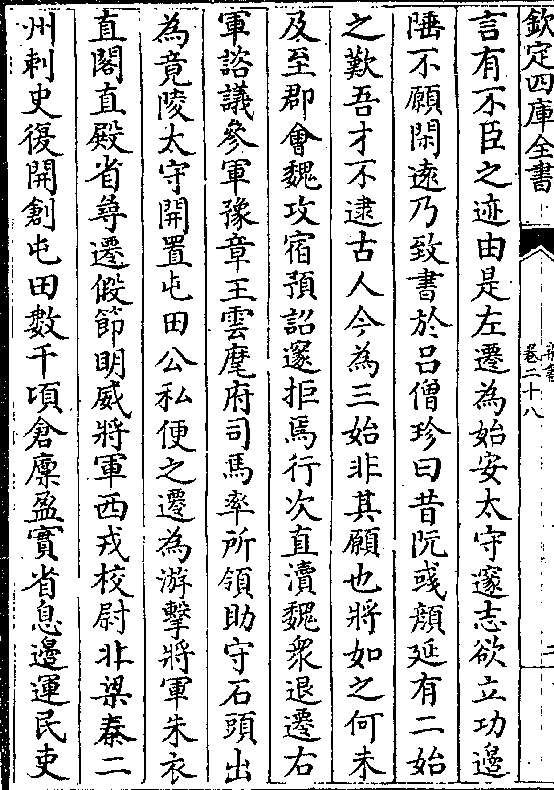 欽定四庫全書
卷二十八
言有不臣之迹由是左遷為始安太守邃志欲立功邊
陲不願閑遠乃致書於吕僧珍曰昔阮彧顔延有二始
之歎吾才不逮古人今為三始非其願也將如之何未
及至郡會魏攻宿預詔邃拒焉行次直瀆魏衆退遷右
軍諮議參軍豫章王雲麾府司馬率所領助守石頭出
為竟陵太守開置屯田公私便之遷為游擊將軍朱衣
直閣直殿省尋遷假節明威將軍西戎校尉北梁秦二
州刺史復開創屯田數千頃倉廪盈實省息邊運民吏